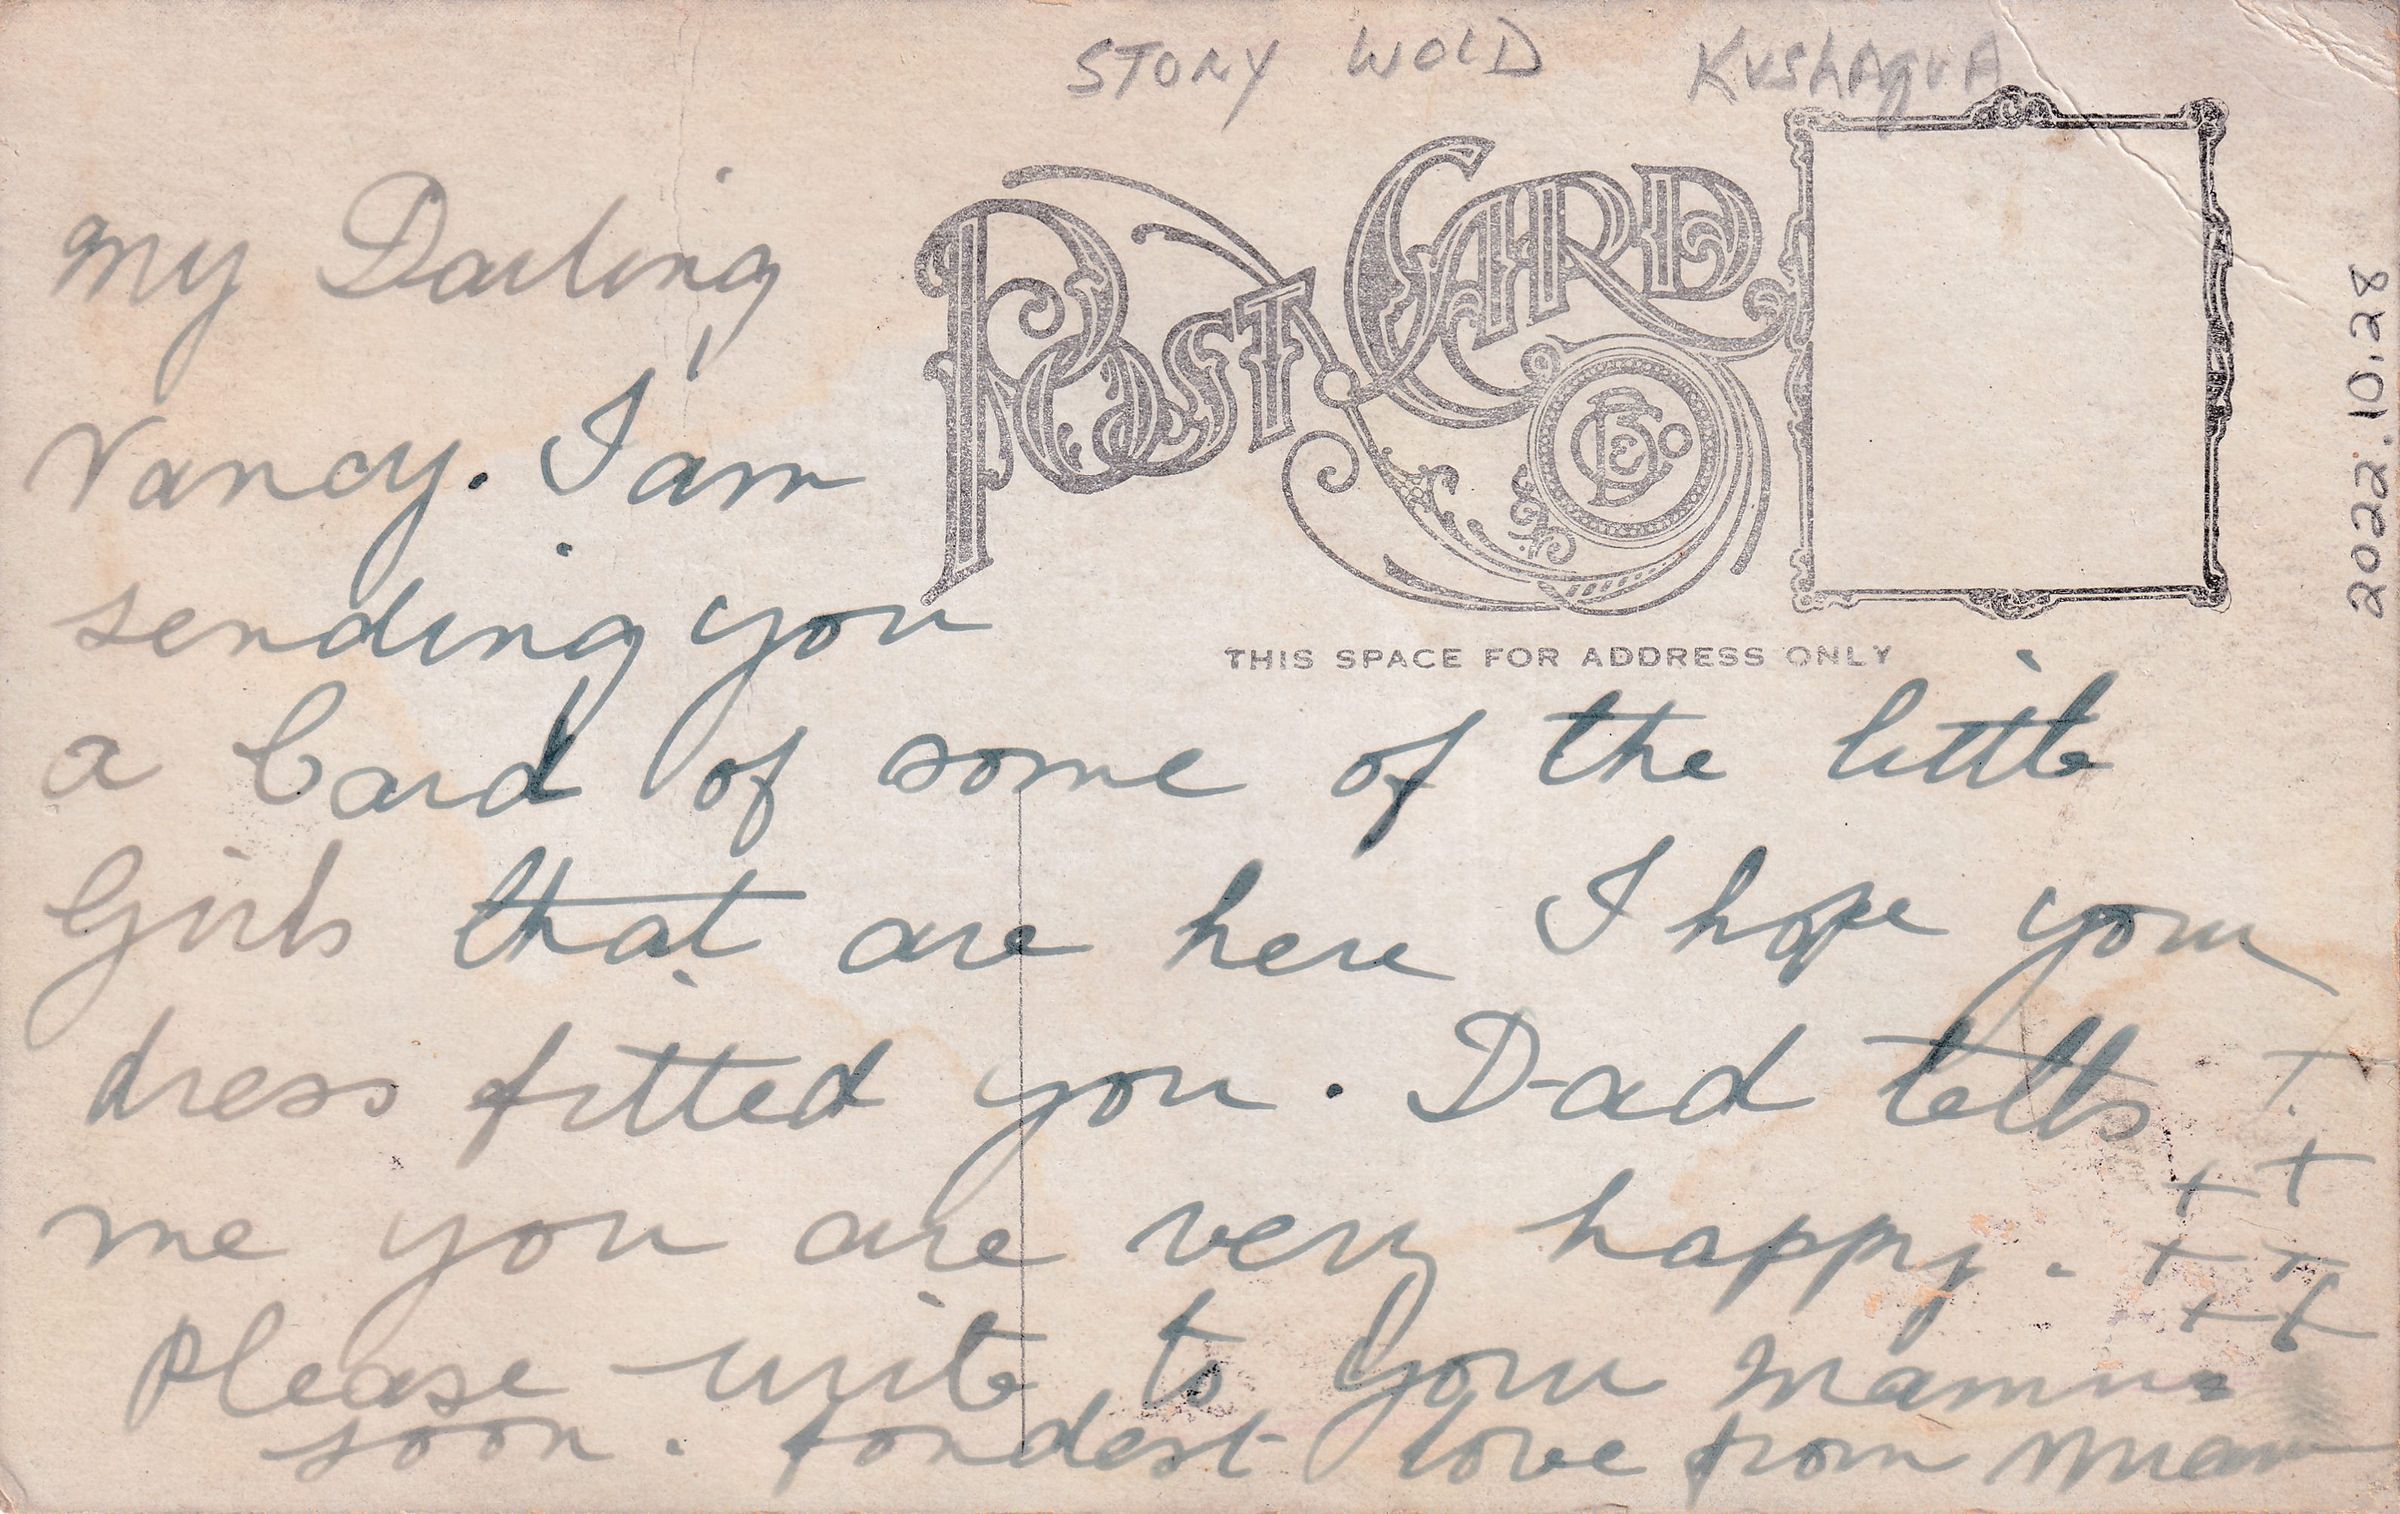 STORY WOLD KUSHAQUA
POST CARD
B E Co
THIS SPACE FOR ADDRESS ONLY
2022.10.28
My Darling
Nancy. I am
sending you
a Card of some of the little
Girls that are here I hope your
dress fitted you. Dad tells
me you are very happy.
Please write to your Mamma
soon. fondest love from Mam
+
+ +
+ +
+ +